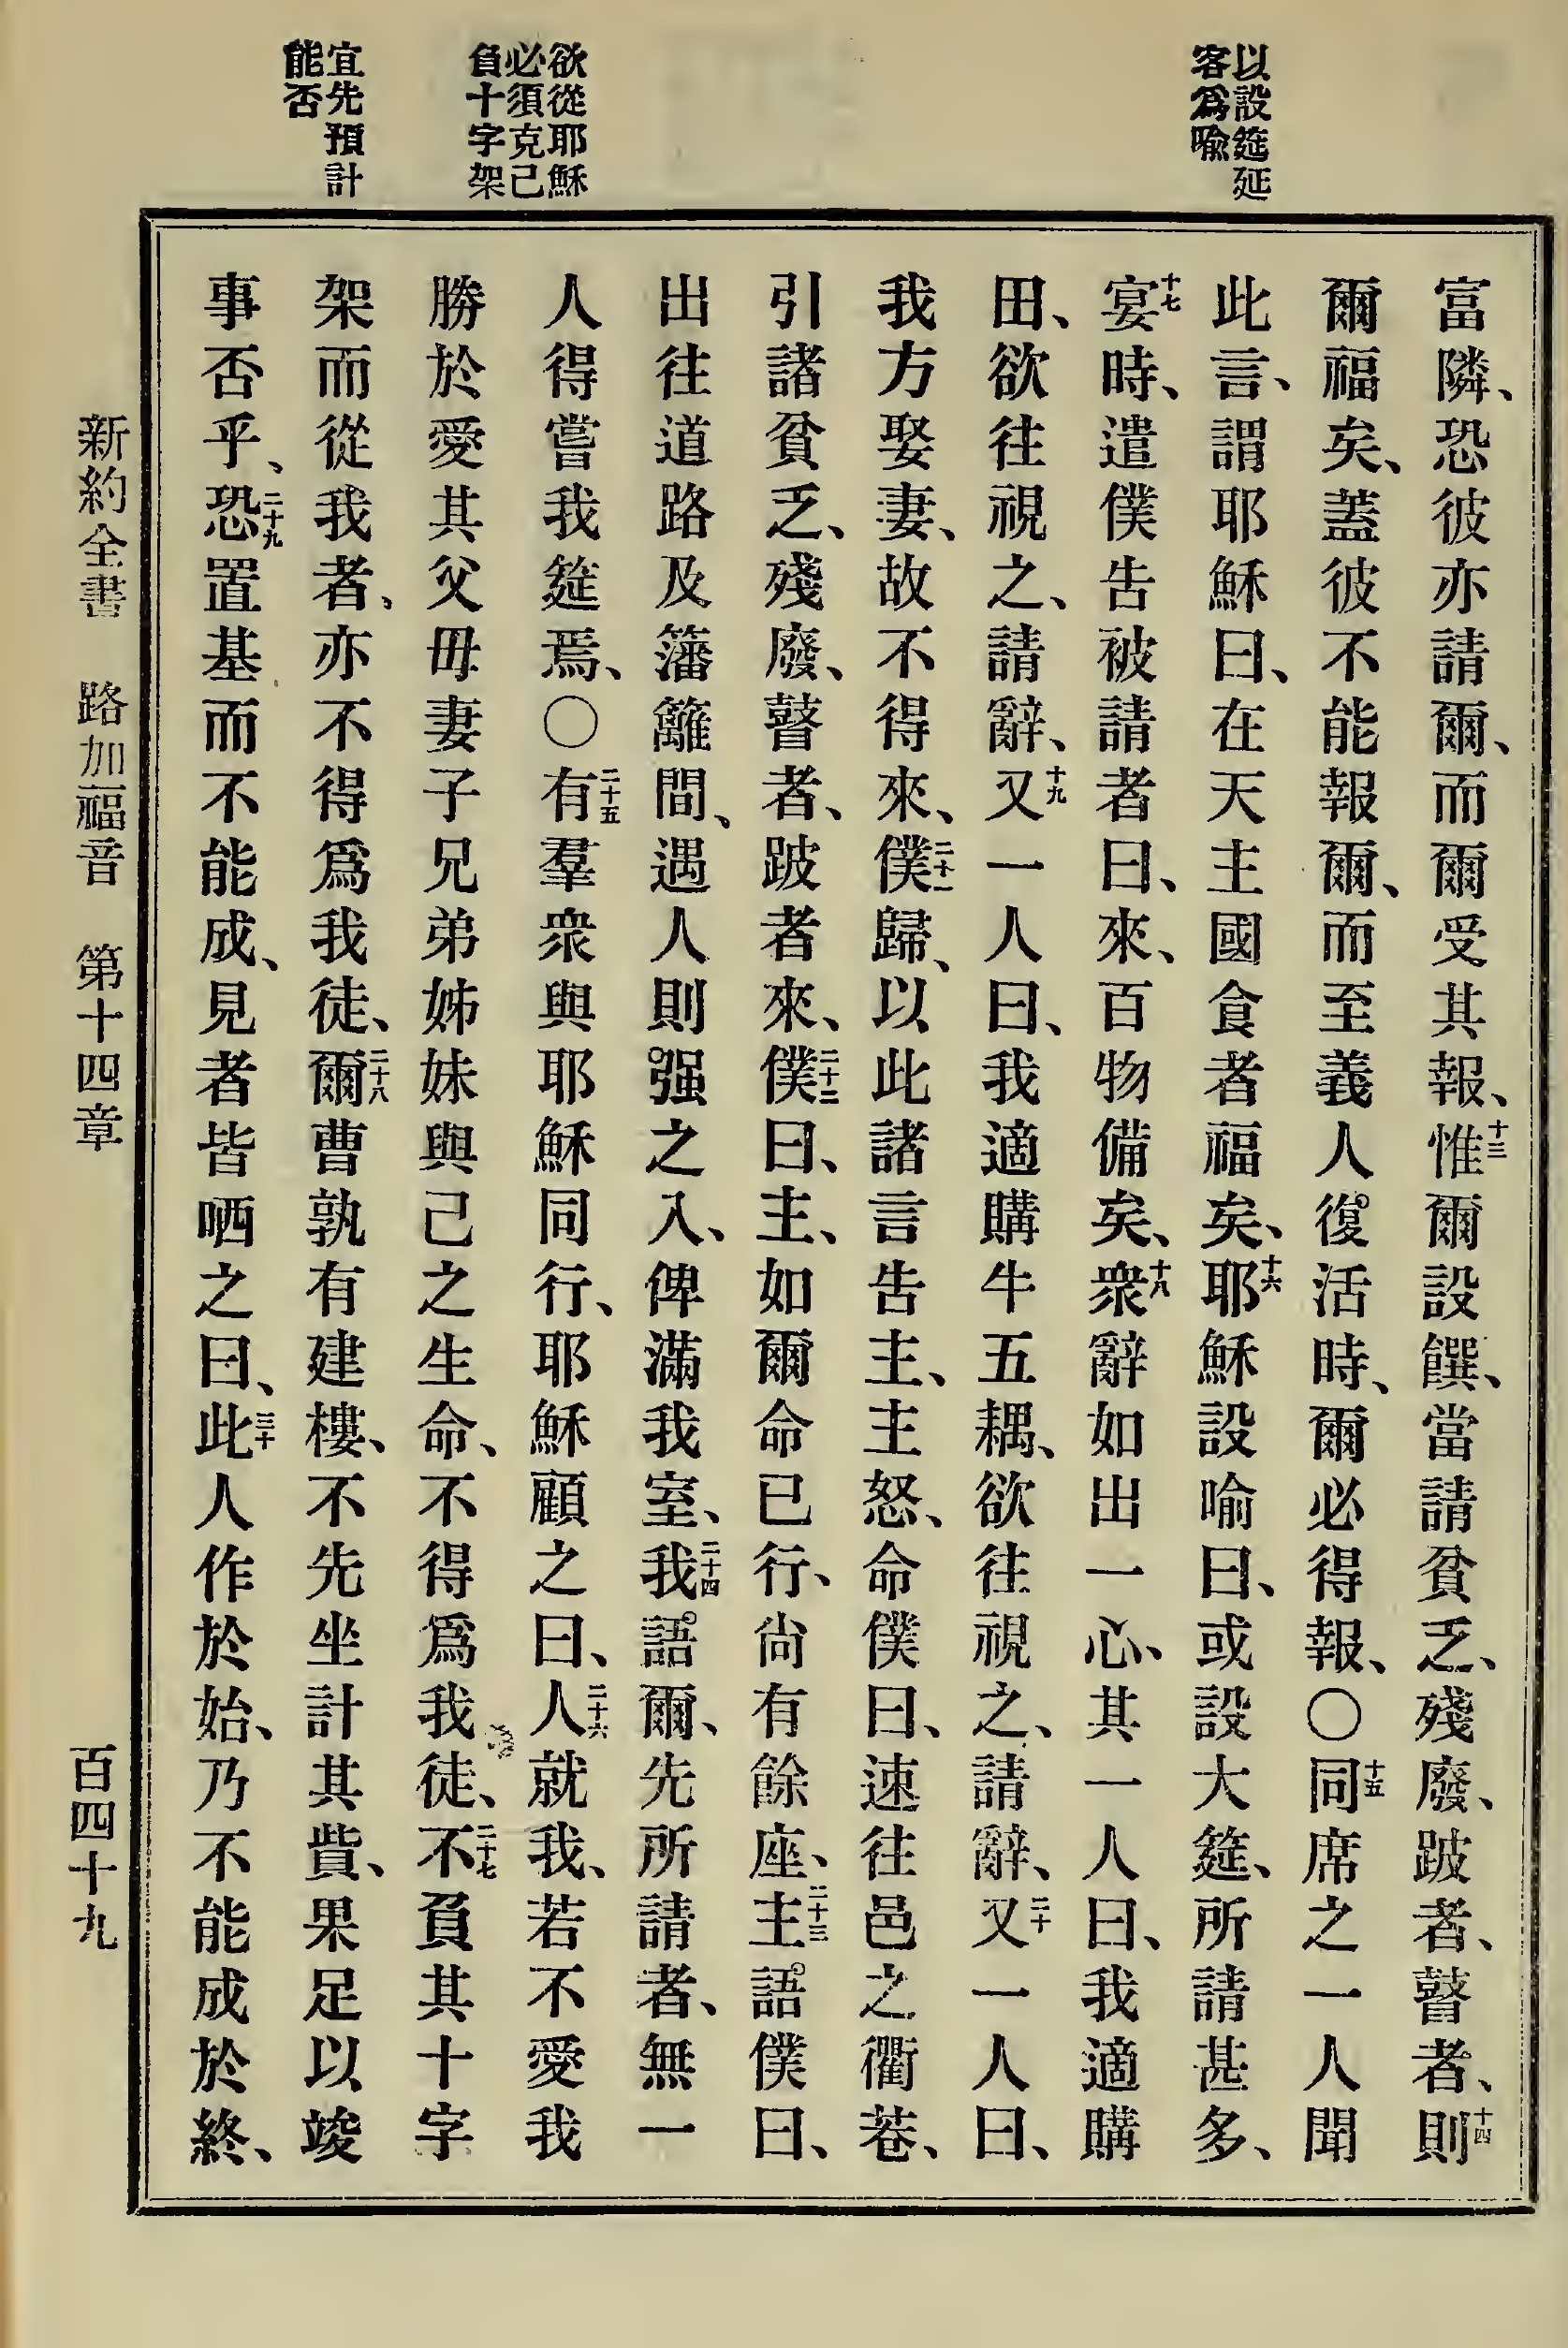 以設筵延
客爲喩
欲從耶穌
必須克己
負十字架
宜先預計
能否
富隣、恐彼亦請爾、而爾受其報、十三惟爾設饌、當請貧乏、殘廢、跛者、瞽者、十四則
爾福矣、蓋彼不能報爾、而至義人復活時、爾必得報、〇十五同席之一人聞
此言、謂耶穌曰、在天主國食者福矣、十六耶穌設喻曰、或設大筵、所請甚多、
十七宴時、遣僕告被請者曰、來、百物備矣、十八衆辭如出一心、其一人曰、我適購
田、欲往視之、請辭、十九又一人曰、我適購牛五耦、欲往視之、請辭、二十又一人曰、
我方娶妻、故不得來、二十一僕歸、以此諸言告主、主怒、命僕曰、速往邑之衢巷、
引諸貧乏、殘廢、瞽者、跛者來、二十二僕曰、主、如爾命已行、尙有餘座、二十三主語僕曰、
出往道路及籓籬間、遇人則强之入、俾滿我室、二十四我語爾、先所請者、無一
人得嘗我筵焉、〇二十五有羣衆與耶穌同行、耶穌顧之曰、二十六人就我、若不愛我
勝於愛其父母妻子兄弟姊妹與己之生命、不得爲我徒、二十七不負其十字
架而從我者、亦不得爲我徒、二十八爾曹孰有建樓、不先坐計其貲、果足以竣
事否乎、二十九恐置基而不能成、見者皆哂之曰、三十此人作於始、乃不能成於終、
新約全書 路加福音 第十四章 百四十九